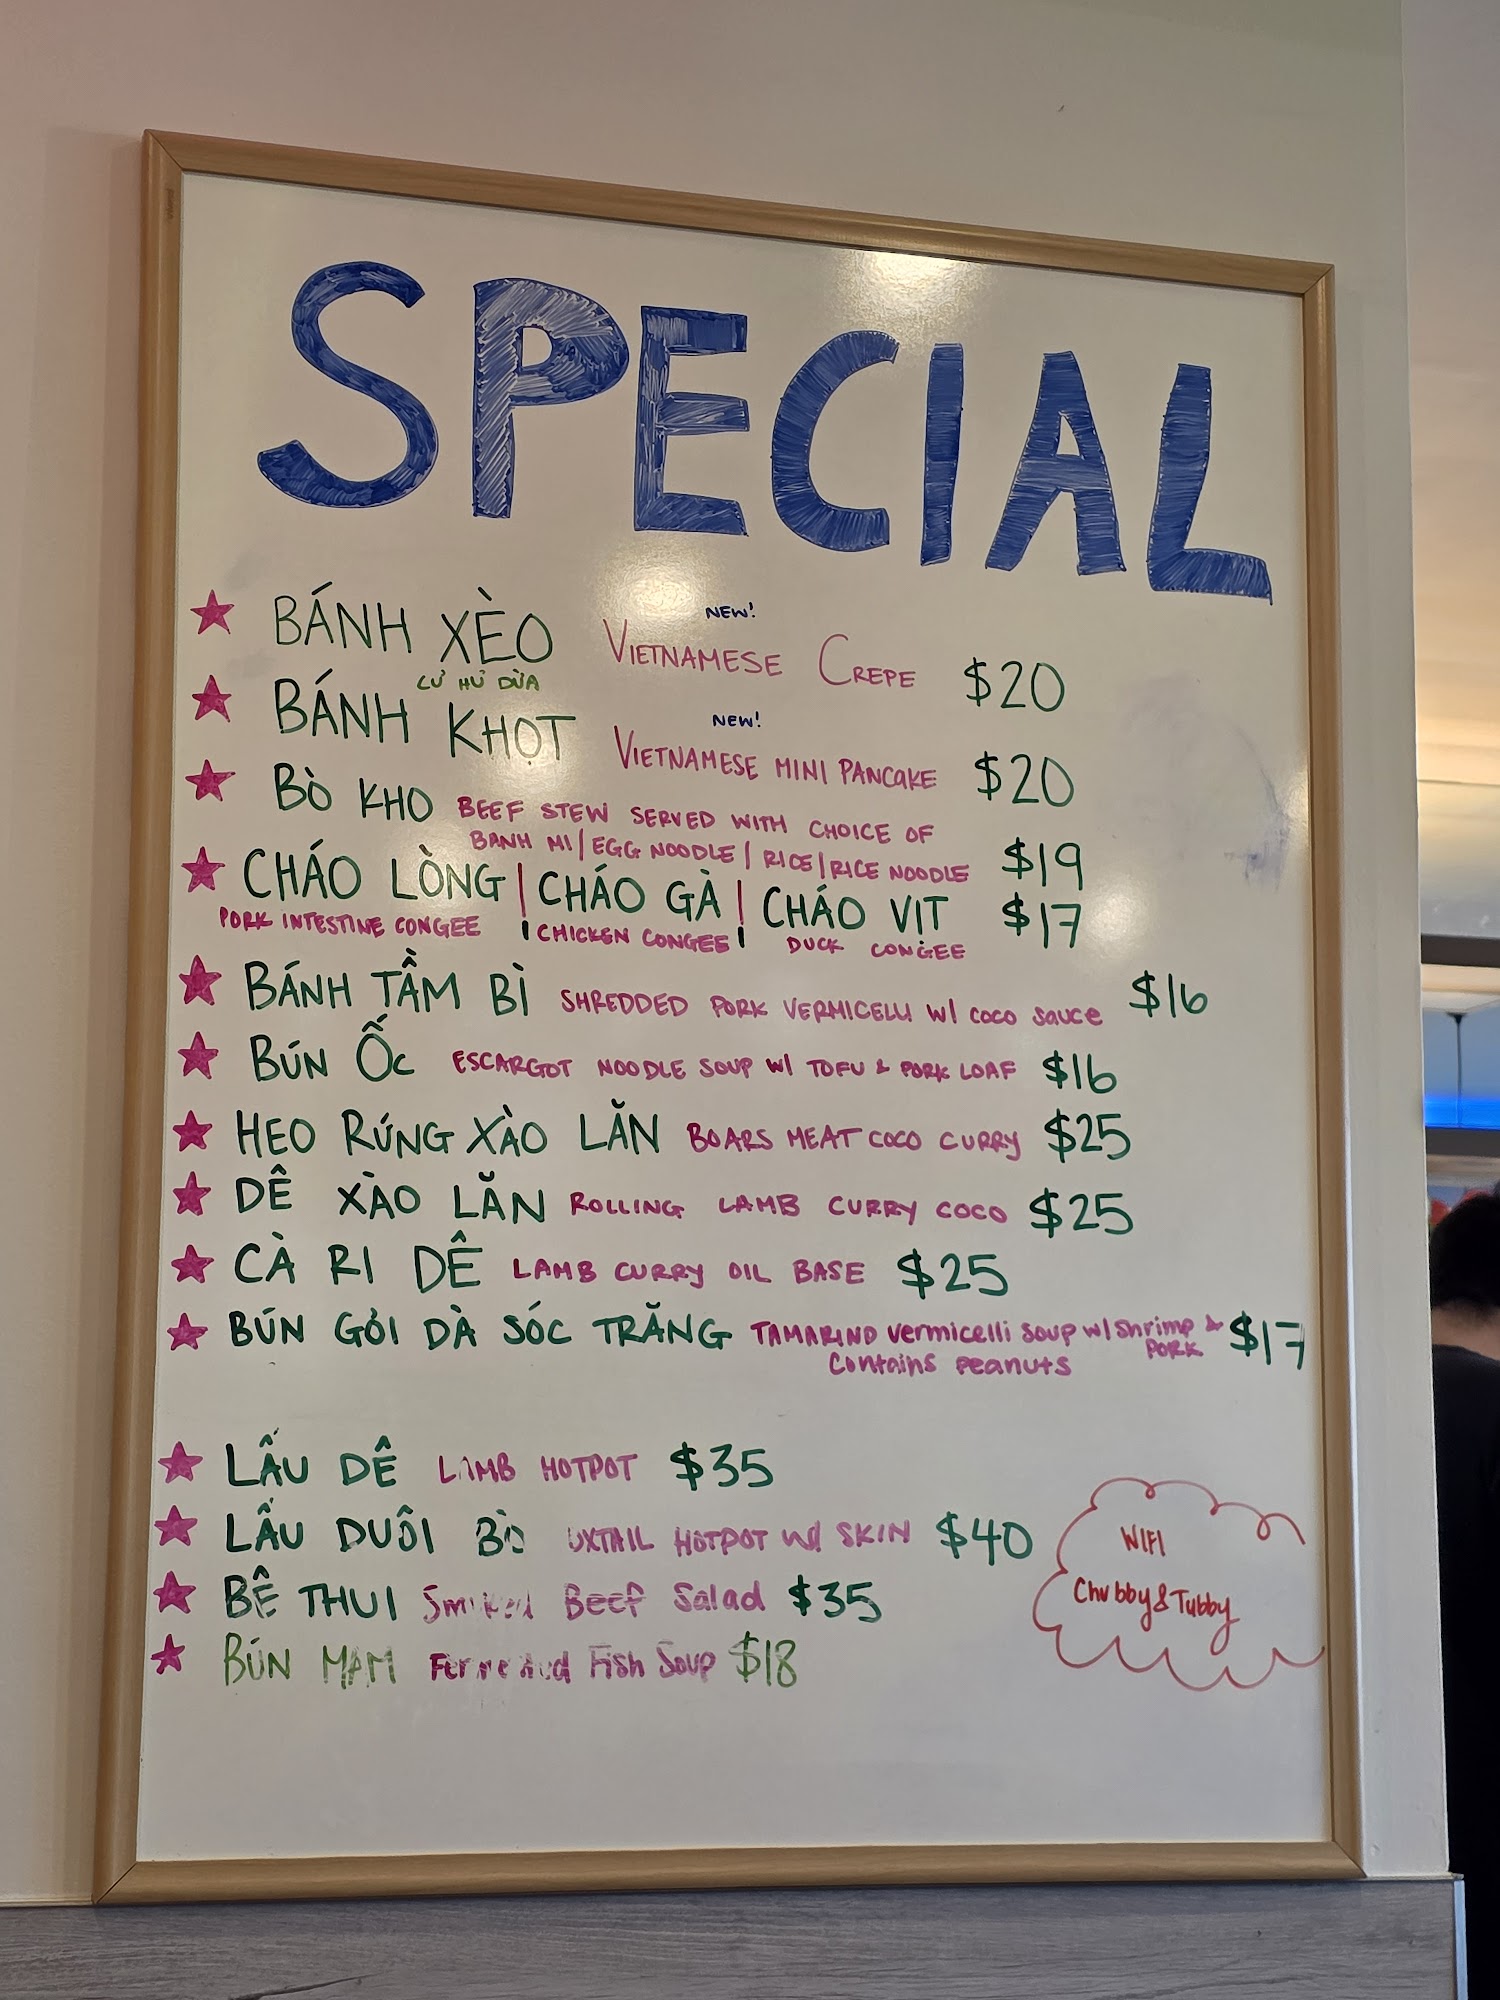 SPECIAL
★ BÁNH XÈO NEW! VIETNAMESE CREPE $20
CỦ HỦ DỪA
★ BÁNH KHỌT NEW! VIETNAMESE MINI PANCAKE $20
★ BÒ KHO BEEF STEW SERVED WITH CHOICE OF
BANH MI/EGG NOODLE/RICE/RICE NOODLE $19
★ CHÁO LÒNG | CHÁO GÀ | CHÁO VỊT $17
PORK INTESTINE CONGEE | CHICKEN CONGEE | DUCK CONGEE
★ BÁNH TẦM BÌ SHREDDED PORK VERMICELLI W/ COCO SAUCE $16
★ BÚN ỐC ESCARGOT NOODLE SOUP W/ TOFU & PORK LOAF $16
★ HEO RỨNG XÀO LĂN BOARS MEAT COCO CURRY $25
★ DÊ XÀO LĂN ROLLING LAMB CURRY COCO $25
★ CÀ RI DÊ LAMB CURRY OIL BASE $25
★ BÚN GỎI DÀ SÓC TRĂNG TAMARIND vermicelli soup w/ Shrimp & $17
PORK
Contains peanuts
★ LẨU DÊ LAMB HOTPOT $35
★ LẨU DUÔI BÒ OXTAIL HOTPOT W/ SKIN $40
★ BÊ THUI Smoked Beef Salad $35
★ BÚN MAM Fermented Fish Soup $18
WIFI
Chubby&Tubby